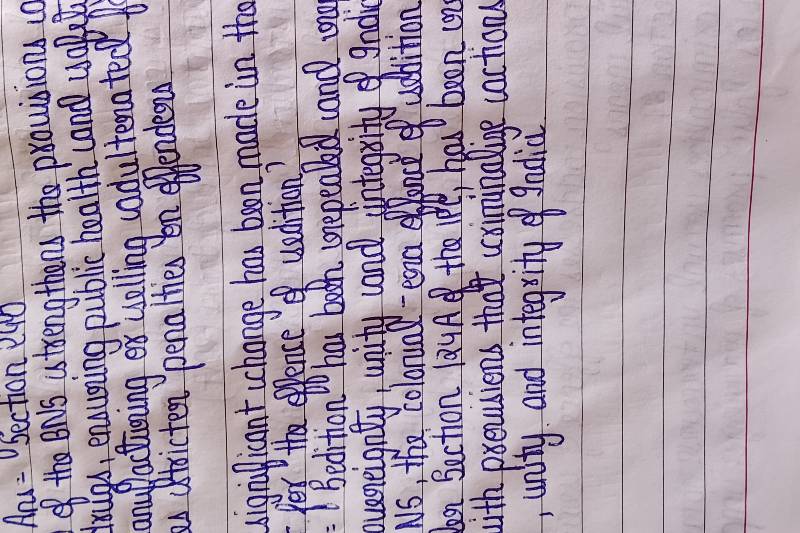 Ans = Section 240
of the BNS strengthens the provisions
drugs, ensuring public health and safety
manufacturing or selling adulterated
stricter penalties on offenders
significant change has been made in the
for the offence of sedition?
= Sedition has been repealed and
sovereignty, unity and integrity of India
NS, the colonial-era offence of sedition
Section 124A of the IPC, has been
with provisions that criminalize actions
, unity and integrity of India